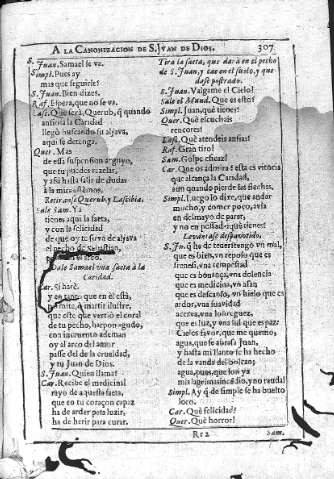 A LA CANONIZACION DE S. JVAN DE DIOS. 307
S. Juan. Samael se va.
Simpl. Pues ay
mas que seguirle?
S. Juan. Bien dizes.
Raf. Espera, que no se va.
Lasc. Que será, Querub, q̃ quando
ansiosa la Caridad
llegò buscando su aljava,
aqui se detenga.
Quer. Mas
de esta suspension arguyo,
que tu
y así hasta salir de dudas
à la mira estemos.
Retiranse Querub y Lascibia.
Sale Sam. Ya
tienes aqui la saeta,
y con la felicidad
de que oy te sirvo de aljava
el pecho de
Dale Samael una saeta à la
Caridad.
Car. Si harè,
y en tanto, que en el està,
martir ilustre,
que este que vertiò el coral
de tu pecho, harpon agudo,
con incremento ademan
oy al arco del amor
passe del de la crueldad,
y tu Juan de Dios.
S. Juan. Quien llama?
Car. Recibe el medicinal
rayo de aquesta saeta,
que en tu coraçon capaz
ha de arder para luzir,
ha de herir para curar.
Tira la saeta, que darà en el pecho
de S. Juan, y cae en el suelo, y que
dase postrado.
S. Juan. Valgame el Cielo!
Sale el Mund. Que es esto?
Simpl. Juan, què tienes?
Quer. Què escuchais
rencores!
Lasc. Què atendeis ansias!
Raf. Gran tiro!
Sam. Golpe eficaz!
Car. Que os admira si esta es vitoria
que alcança la Caridad,
aun quando pierde las flechas.
Simpl. Luego lo dixe, que andar
mucho, y comer poco, avia
en desmayo de parar,
y no en possada: què tienes?
Levantase despavorido.
S. Ju. q̃ he de tener? tengo vn mal,
que es bien, vn reposo que es
vna tempestad
que es bonança, vna dolencia
que es medicina, vn afan
que es descanso, vn hielo que es
ardor, vna suavidad
acerva, vna
que es luz, y vna lid que es paz:
Cielos favor, que me quemo,
agua, que se abrasa Juan,
y hasta mi llanto se ha hecho
de la vanda del bolcan;
agua, pues, que son ya
mis lagrimas incendio, y no raudal
Simpl. Ay q̃ de simple se ha buelto
loco.
Car. Què felicidad!
Quer. Què horror!
Rr2 Sam.